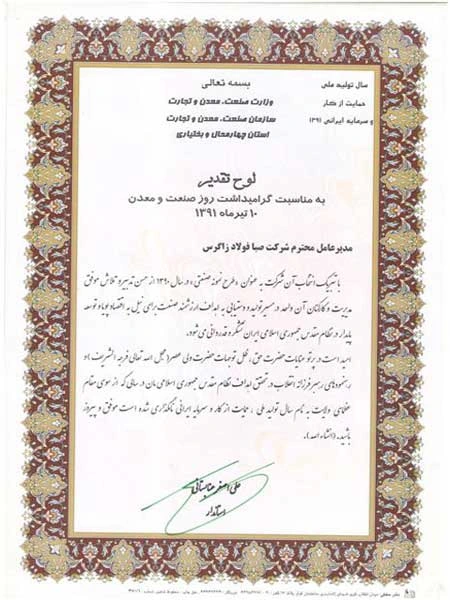 سال تولید ملی
حمایت از کار
و سرمایه ایرانی ۱۳۹۱
بسمه تعالی
وزارت صنعت، معدن و تجارت
سازمان صنعت، معدن و تجارت
استان چهارمحال و بختیاری
لوح تقدیر
به مناسبت گرامیداشت روز صنعت و معدن
۱۰ تیرماه ۱۳۹۱
مدیرعامل محترم شرکت صبا فولاد زاگرس
با تبریک انتخاب آن شرکت به عنوان «طرح نمونه صنعتی» در سال ۱۳۹۰ از حسن تدبیر و تلاش موفق
مدیریت و کارکنان آن واحد در مسیر تولید و دستیابی به اهداف ارزشمند صنعت برای نیل به اقتصاد پویا و توسعه
پایدار در نظام مقدس جمهوری اسلامی ایران تشکر و قدردانی می شود.
امید است در پرتو عنایات حضرت حق، ظل توجهات حضرت ولی عصر (عجل الله تعالی فرجه الشریف) و
رهنمودهای رهبر فرزانه انقلاب در تحقق اهداف نظام مقدس جمهوری اسلامی مان در سالی که از سوی مقام
عظمای ولایت به نام سال تولید ملی، حمایت از کار و سرمایه ایرانی نامگذاری شده است موفق و پیروز
باشید. (انشاء الله).
علی اصغر عنابستانی
استاندار